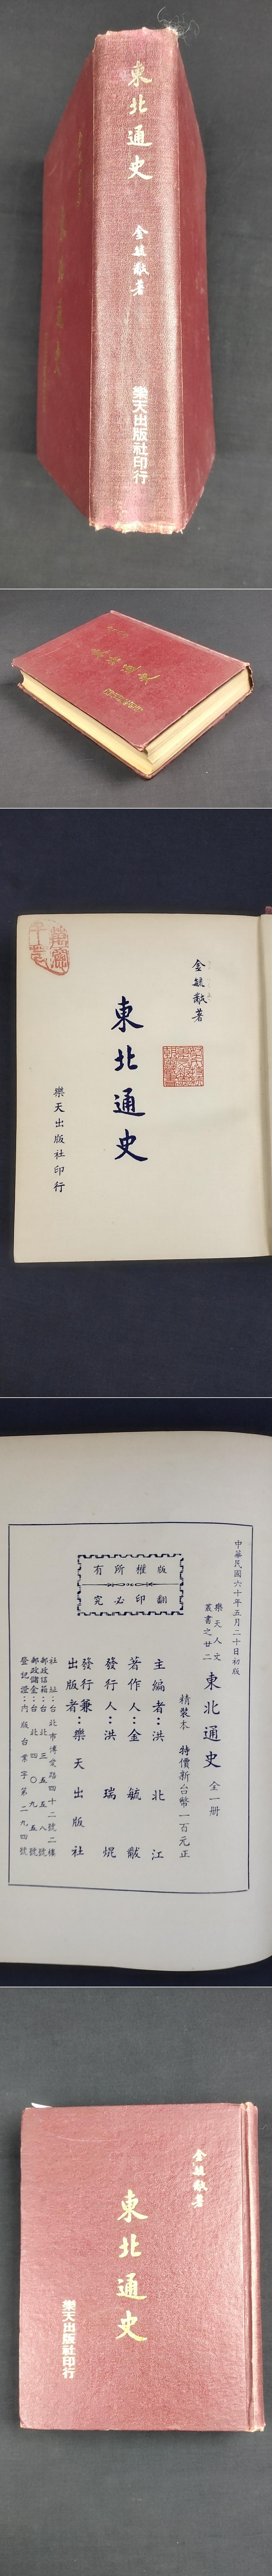 東北通史
金毓黻著
樂天出版社印行
金毓黻著
東北通史
樂天出版社印行
中華民國六十年五月二十日初版
樂天人文叢書之廿二
東北通史 全一册
精裝本 特價新台幣一百元正
主編者：洪北江
著作人：金毓黻
發行人：洪瑞焜
發行兼出版者：樂天出版社
社址：台北市博愛路四十二號二樓
郵政信箱：台北三五五八號
郵政儲金：台北四〇九五號
登記證：內版台業字第二九四號
版權所有
翻印必究
金毓黻著
東北通史
樂天出版社印行